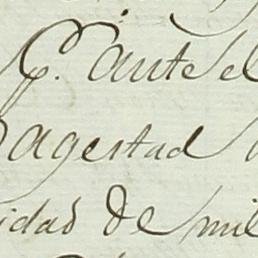 C. ante el
agestad
idad de mil